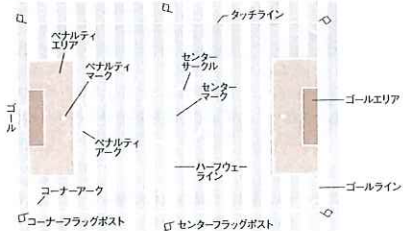 タッチライン
ペナルティ
エリア
ペナルティ
マーク
センター
サークル
センター
マーク
ゴール
ゴールエリア
ペナルティ
アーク
ハーフウェー
ライン
コーナーアーク
ゴールライン
コーナーフラッグポスト
センターフラッグポスト